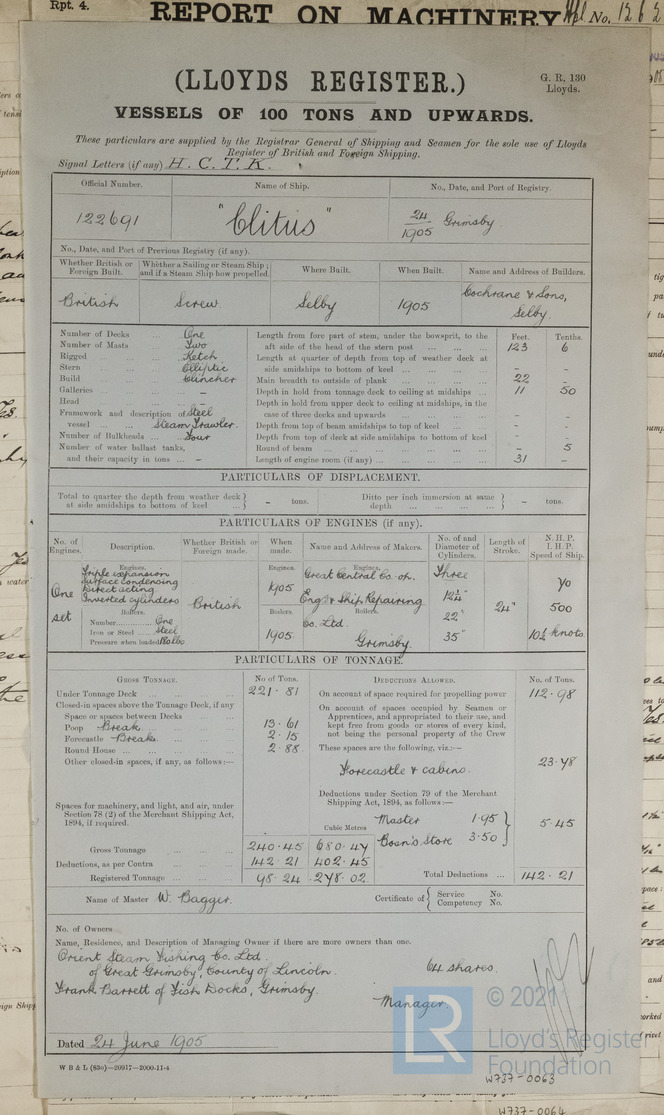 Rpt. 4.
REPORT ON MACHINERY
No. 1262
(LLOYDS REGISTER.)
G. R. 130
Lloyds.
VESSELS OF 100 TONS AND UPWARDS.
These particulars are supplied by the Registrar General of Shipping and Seamen for the sole use of Lloyds
Register of British and Foreign Shipping.
Signal Letters (if any) H. C. T. K.
Official Number. Name of Ship. No., Date, and Port of Registry.
122691 "Clitus" 24/1905 Grimsby
No., Date, and Port of Previous Registry (if any).
Whether British or Foreign Built. Whether a Sailing or Steam Ship; and if a Steam Ship how propelled. Where Built. When Built. Name and Address of Builders.
British Screw. Selby 1905 Cochrane & Sons, Selby.
Feet. Tenths.
Number of Decks ... One
Number of Masts ... Two
Rigged ... Ketch
Stern ... Elliptic
Build ... Clincher
Galleries ... –
Head ... –
Framework and description of vessel ... Steel Steam Trawler.
Number of Bulkheads ... Four
Number of water ballast tanks,
and their capacity in tons ... –
Length from fore part of stem, under the bowsprit, to the
aft side of the head of the stern post ... 123 6
Length at quarter of depth from top of weather deck at
side amidships to bottom of keel ... – –
Main breadth to outside of plank ... 22 –
Depth in hold from tonnage deck to ceiling at midships ... 11 50
Depth in hold from upper deck to ceiling at midships, in the
case of three decks and upwards ... – –
Depth from top of beam amidships to top of keel ... – –
Depth from top of deck at side amidships to bottom of keel – –
Round of beam ... – 5
Length of engine room (if any) ... 31 –
PARTICULARS OF DISPLACEMENT.
Total to quarter the depth from weather deck at side amidships to bottom of keel ... } – tons.
Ditto per inch immersion at same depth ... } – tons.
PARTICULARS OF ENGINES (if any).
No. of Engines. Description. Whether British or Foreign made. When made. Name and Address of Makers. No. of and Diameter of Cylinders. Length of Stroke. N. H. P. I. H. P. Speed of Ship.
One set
Engines.
Triple expansion
Surface condensing
Direct acting
Inverted cylinders
Boilers.
Number... One
Iron or Steel ... Steel
Pressure when loaded 180 lbs
British
Engines.
1905
Boilers.
1905
Engines.
Great Central Co. op.
Eng. & Ship Repairing
Boilers.
Co. Ltd.
Grimsby.
Three
12¼"
22"
35"
24"
70
500
10½ knots.
PARTICULARS OF TONNAGE.
Gross Tonnage. No of Tons.
Under Tonnage Deck ... 221 · 81
Closed-in spaces above the Tonnage Deck, if any
Space or spaces between Decks ...
Poop Break ... 13 · 61
Forecastle Break ... 2 · 15
Round House ... 2 · 88
Other closed-in spaces, if any, as follows:—
Spaces for machinery, and light, and air, under
Section 78 (2) of the Merchant Shipping Act,
1894, if required.
Cubic Metres
Gross Tonnage ... 240 · 45 680 · 47
Deductions, as per Contra ... 142 · 21 402 · 45
Registered Tonnage ... 98 · 24 278 · 02
Deductions Allowed. No. of Tons.
On account of space required for propelling power 112 · 98
On account of spaces occupied by Seamen or
Apprentices, and appropriated to their use, and
kept free from goods or stores of every kind,
not being the personal property of the Crew
These spaces are the following, viz.:—
Forecastle & cabins. 23 · 78
Deductions under Section 79 of the Merchant
Shipping Act, 1894, as follows:—
Master 1·95
Boan's Store 3·50 } 5 · 45
Total Deductions ... 142 · 21
Name of Master W. Bagger.
Certificate of { Service No.
Competency No.
No. of Owners
Name, Residence, and Description of Managing Owner if there are more owners than one.
Orient Steam Fishing Co. Ltd.
of Great Grimsby, County of Lincoln. 64 shares.
Frank Barrett of Fish Docks, Grimsby.
Manager.
Dated 24 June 1905
W B & L (830)—20917—2000-11-4
LR
© 2021
Lloyd's Register
Foundation
W737-0063
W737-0064